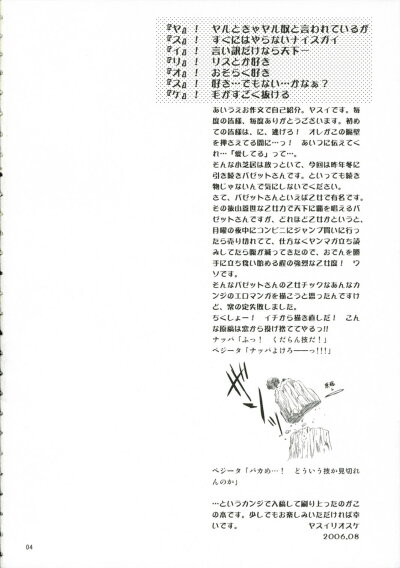 『ヤ』！　ヤルときゃヤル奴と言われているが
『ス』！　すぐにはやらないナイスガイ
『イ』！　言い訳だけなら天下一
『リ』！　リスとか好き
『オ』！　おそらく好き
『ス』！　好き…でもない…かなぁ？
『ケ』！　毛がすごく抜ける
あいうえお作文で自己紹介。ヤスイです。毎
度の皆様、毎度ありがとうございます。初めて
の皆様は、に、逃げろ！　オレがこの腕壁
を押さえてる間に…っ！　あいつに伝えてく
れ…「愛してる」って…。
そんな小芝居は放っといて、今回は昨年冬に
引き続きバゼットさんです。といっても続き
物じゃないんで気にしないでください。
さて、バゼットさんといえば乙女で有名です。
その抜山蓋世な乙女力で天下に覇を唱えるバ
ゼットさんですが、どれほど乙女かというと、
月曜の夜中にコンビニにジャンプ買いに行っ
たら売り切れてて、仕方なくヤンマガ立ち読
みしてたら腹が減ってきたので、おでんを勝
手に立ち食い始める程の強烈な乙女度！　ウ
ソです。
そんなバゼットさんの乙女チックなあんなカ
ンジのエロマンガを描こうと思ったんですけ
ど、常の定失敗しました。
ちくしょー！　イチから描き直しだ！　こん
な原稿は窓から投げ捨ててやるっ!!
ナッパ「ふっ！　くだらん技だ！」
ベジータ「ナッパよけろーーっ!!!」
原稿
ベジータ「バカめ…！　どういう技か見切れ
んのか」
…というカンジで入稿して刷り上ったのがこ
の本です。少しでもお楽しみいただければ幸
いです。　ヤスイリオスケ
2006,08
04